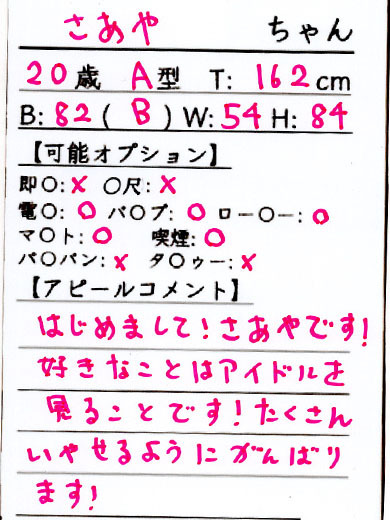 さあや ちゃん
20歳 A型 T: 162cm
B: 82 ( B ) W: 54 H: 84
【可能オプション】
即〇: × 〇尺: ×
電〇: ○ バ〇ブ: ○ ロー〇ー: ○
マ〇ト: ○ 喫煙: ○
パ〇パン: × タ〇ゥー: ×
【アピールコメント】
はじめまして!さあやです!
好きなことはアイドルを
見ることです!たくさん
いやせるようにがんばり
ます!